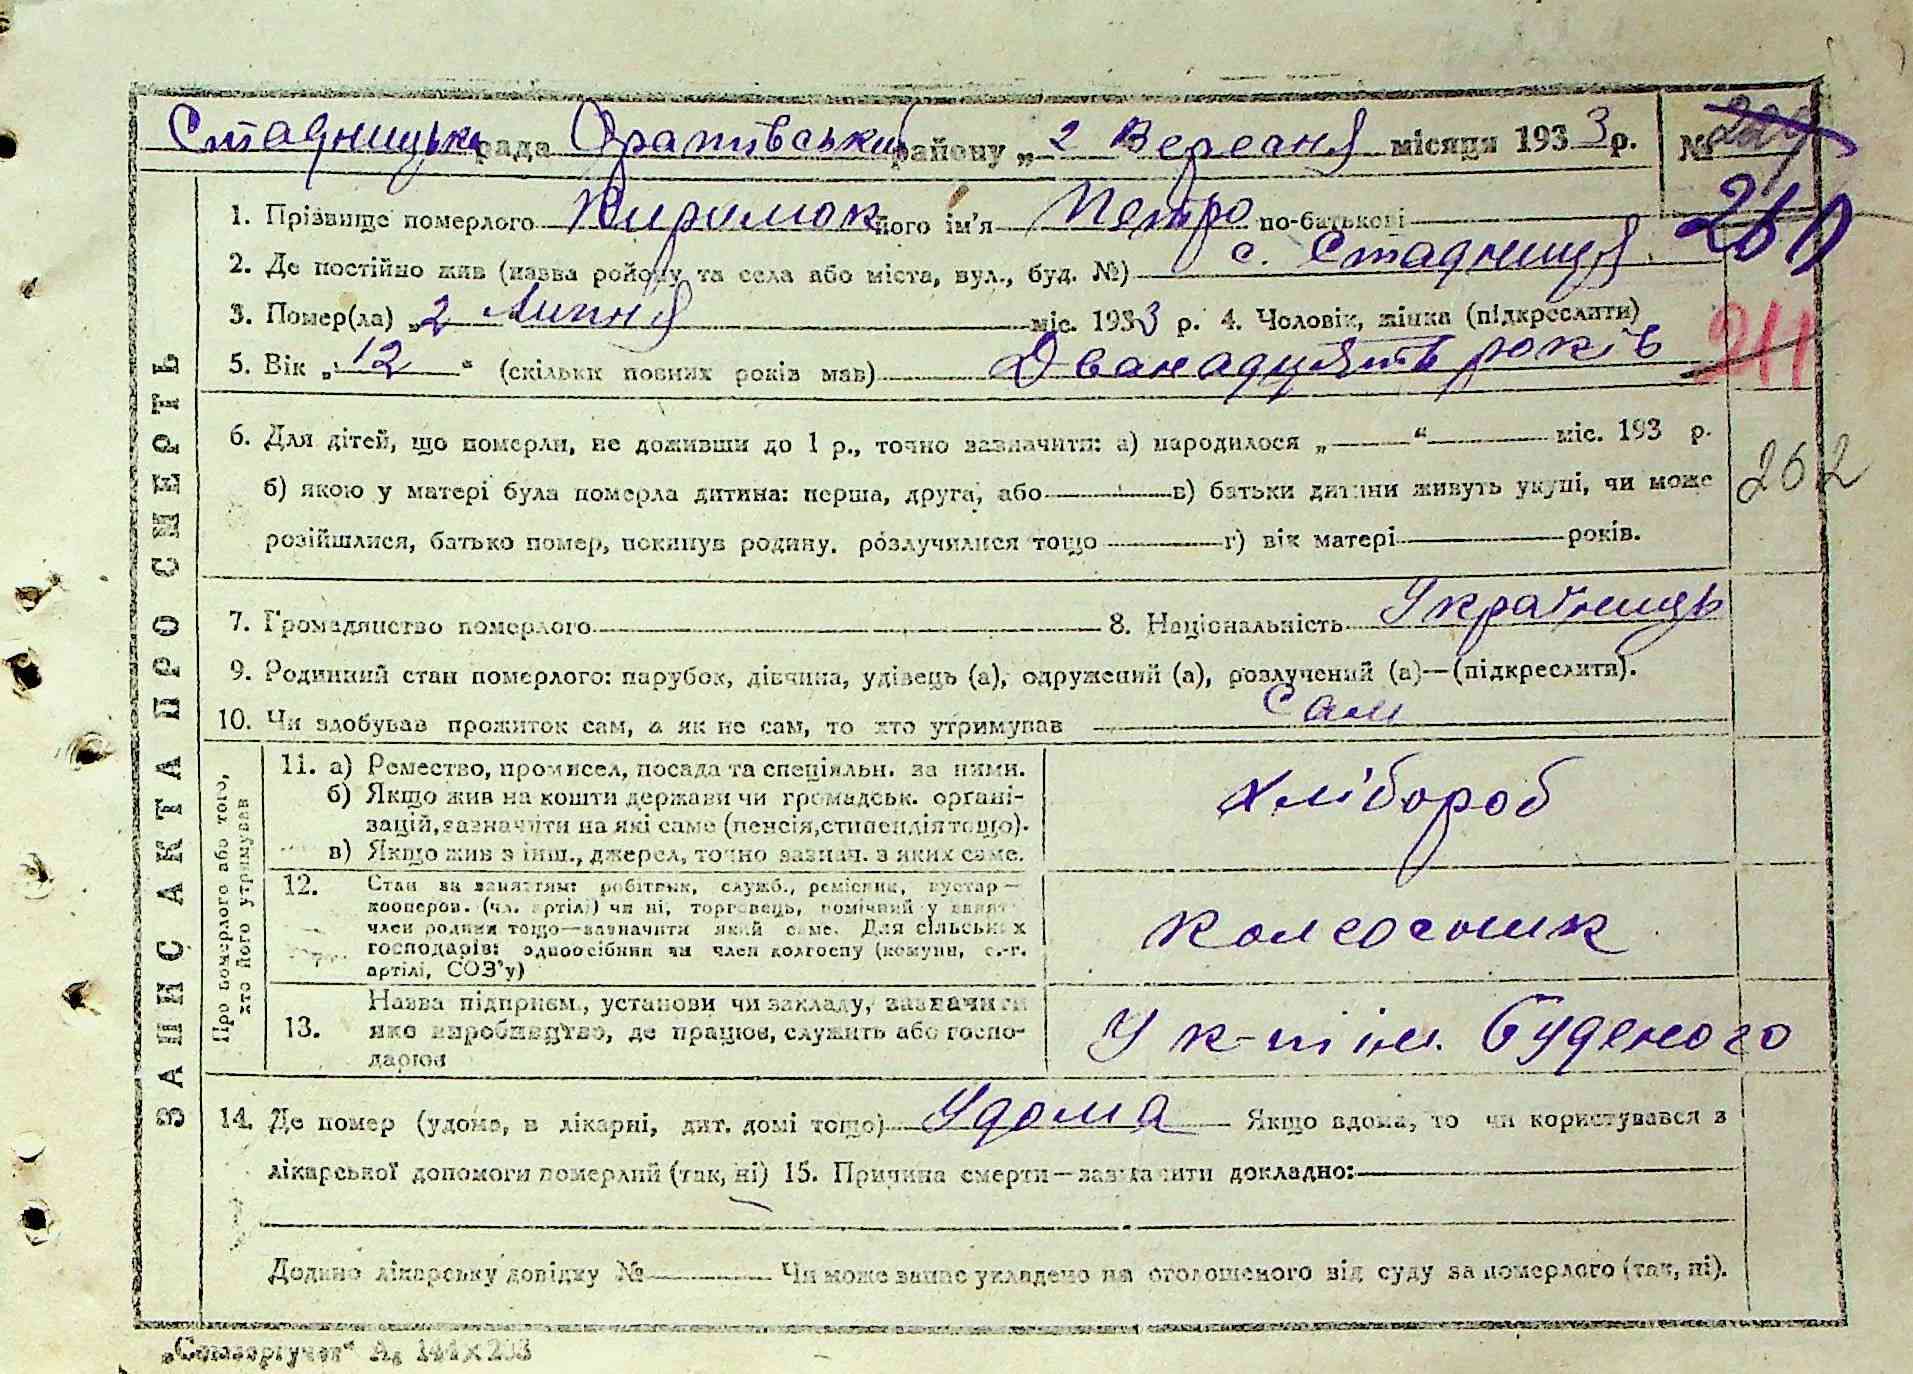 Стадницька рада Оратівський району „2 Вересня місяця 1933 р. №
260
1. Прізвище померлого його ім'я Петро по-батькові
2. Де постійно жив (назва ройону та села або міста, вул., буд. №) с. Стадниця
3. Помер(ла) „2 Липня міс. 1933 р. 4. Чоловік, жінка (підкреслити)
211
5. Вік „12“ (скільки повних років мав) Дванадцять років
6. Для дітей, що померли, не доживши до 1 р., точно зазначити: а) народилося „ “ міс. 193 р.
262
б) якою у матері була померла дитина: перша, друга, або в) батьки дитини живуть укупі, чи може
розійшлися, батько помер, покинув родину, розлучилися тощо г) вік матері років.
7. Громадянство померлого 8. Національність Українець
9. Родинний стан померлого: парубок, дівчина, удівець (а), одружений (а), розлучений (а)—(підкреслити).
10. Чи здобував прожиток сам, а як не сам, то хто утримував Сам
ЗАПИС АКТА ПРО СМЕРТЬ
Про померлого або того,
хто його утримував
11. а) Ремество, промисел, посада та спеціяльн. за ними.
б) Якщо жив на кошти держави чи громадськ. органі-
зацій, зазначити на які саме (пенсія, стипендія тощо).
в) Якщо жив з інш., джерел, точно зазнач. з яких саме.
Хлібороб
12. Стан за заняттям: робітник, служб., ремісник, кустар—
кооперов. (чл. артілі) чи ні, торговець, помічний у занят
член родини тощо—зазначити який саме. Для сільських
господарів: одноосібник чи член колгоспу (комуни, с.-г.
артілі, СОЗ'у)
колгосник
13. Назва підприєм., установи чи закладу, зазначити
яке виробництво, де працює, служить або госпо-
дарює
У к-пі ім. Буденого
14. Де помер (удома, в лікарні, дит. домі тощо) Удома Якщо вдома, то чи користувався з
лікарської допомоги померлий (так, ні) 15. Причина смерти—зазначити докладно:
Додано лікарську довідку № Чи може запис укладено на оголошеного від суду за померлого (так, ні).